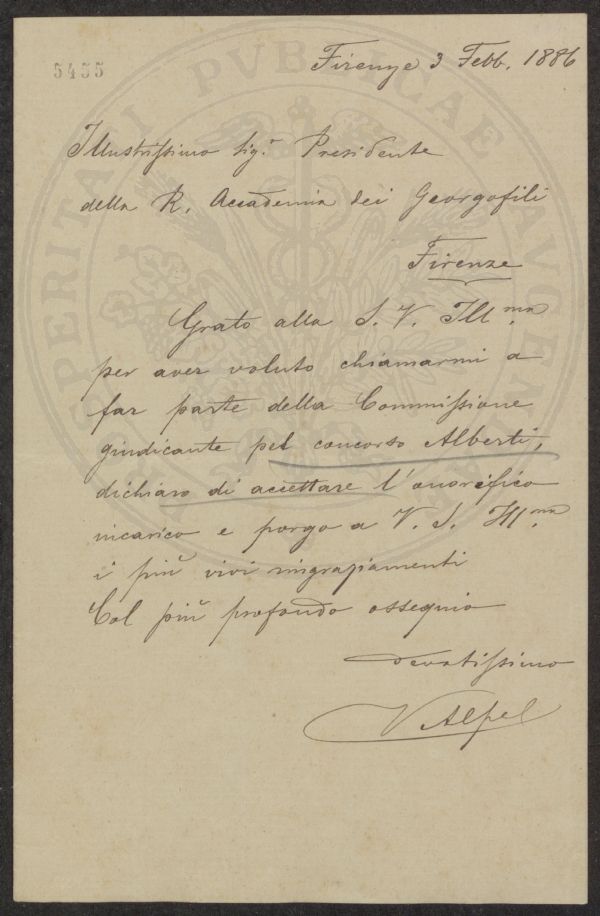 5435
Firenze 3 Febb. 1886
Illustrissimo Sig.r Presidente
della R. Accademia dei Georgofili
Firenze
Grato alla S. V. Ill.ma
per aver voluto chiamarmi a
far parte della Commissione
giudicante pel concorso Alberti,
dichiaro di accettare l'onorifico
incarico e porgo a V. S. Ill.ma
i più vivi ringraziamenti
Col più profondo ossequio
devotissimo
V Alpe
PROSPERITATI PVBLICAE AVGENDAE